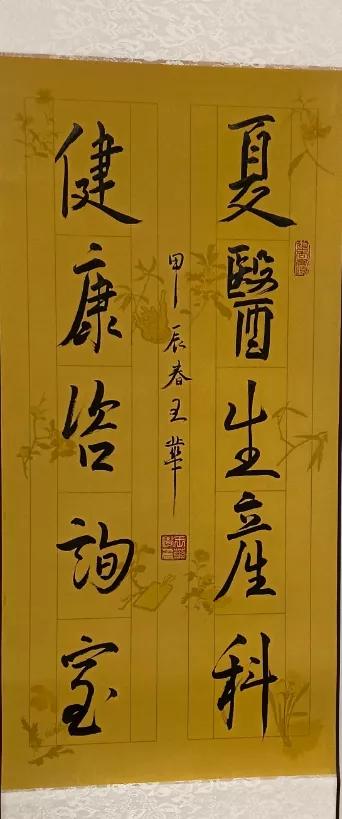 夏醫生產科
健康咨詢室
甲辰春王華